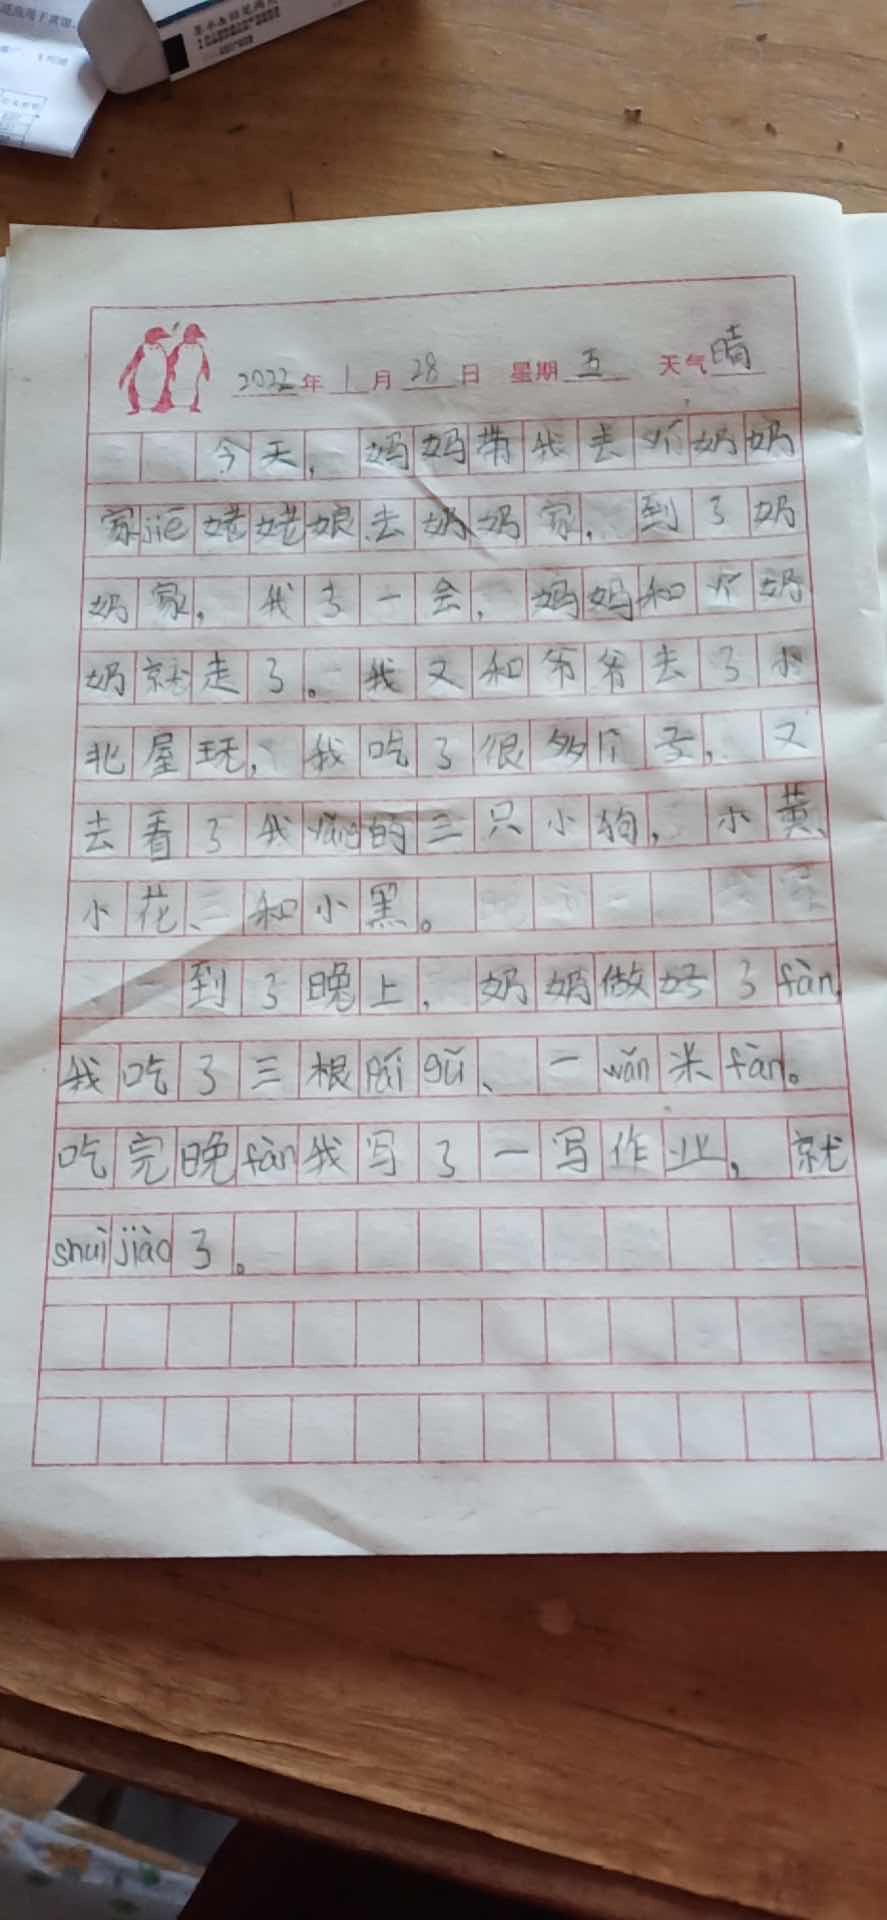 2022年1月28日 星期五 天气晴
今天，妈妈带我去奶奶
家jiē姥姥娘去奶奶家，到了奶
奶家，我了一会，妈妈和奶
奶就走了。我又和爷爷去了小
北屋玩，我吃了很多子，又
去看了我yǎng的三只小狗，小黄、
小花、和小黑。
到了晚上，奶奶做好了fàn，
我吃了三根pái gǔ、一wǎn米fàn。
吃完晚fàn我写了一写作业，就
shuì jiào了。